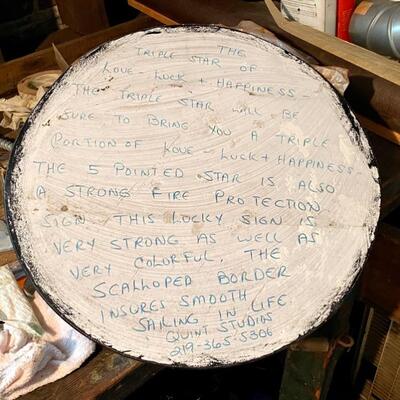 THE
TRIPLE STAR OF
LOVE - LUCK + HAPPINESS -
THE TRIPLE STAR WILL BE
SURE TO BRING YOU A TRIPLE
PORTION OF LOVE - LUCK + HAPPINESS
THE 5 POINTED STAR IS ALSO
A STRONG FIRE PROTECTION
SIGN. THIS LUCKY SIGN IS
VERY STRONG AS WELL AS
VERY COLORFUL. THE
SCALLOPED BORDER
INSURES SMOOTH
SAILING IN LIFE.
QUINT STUDIOS
219-365-5306